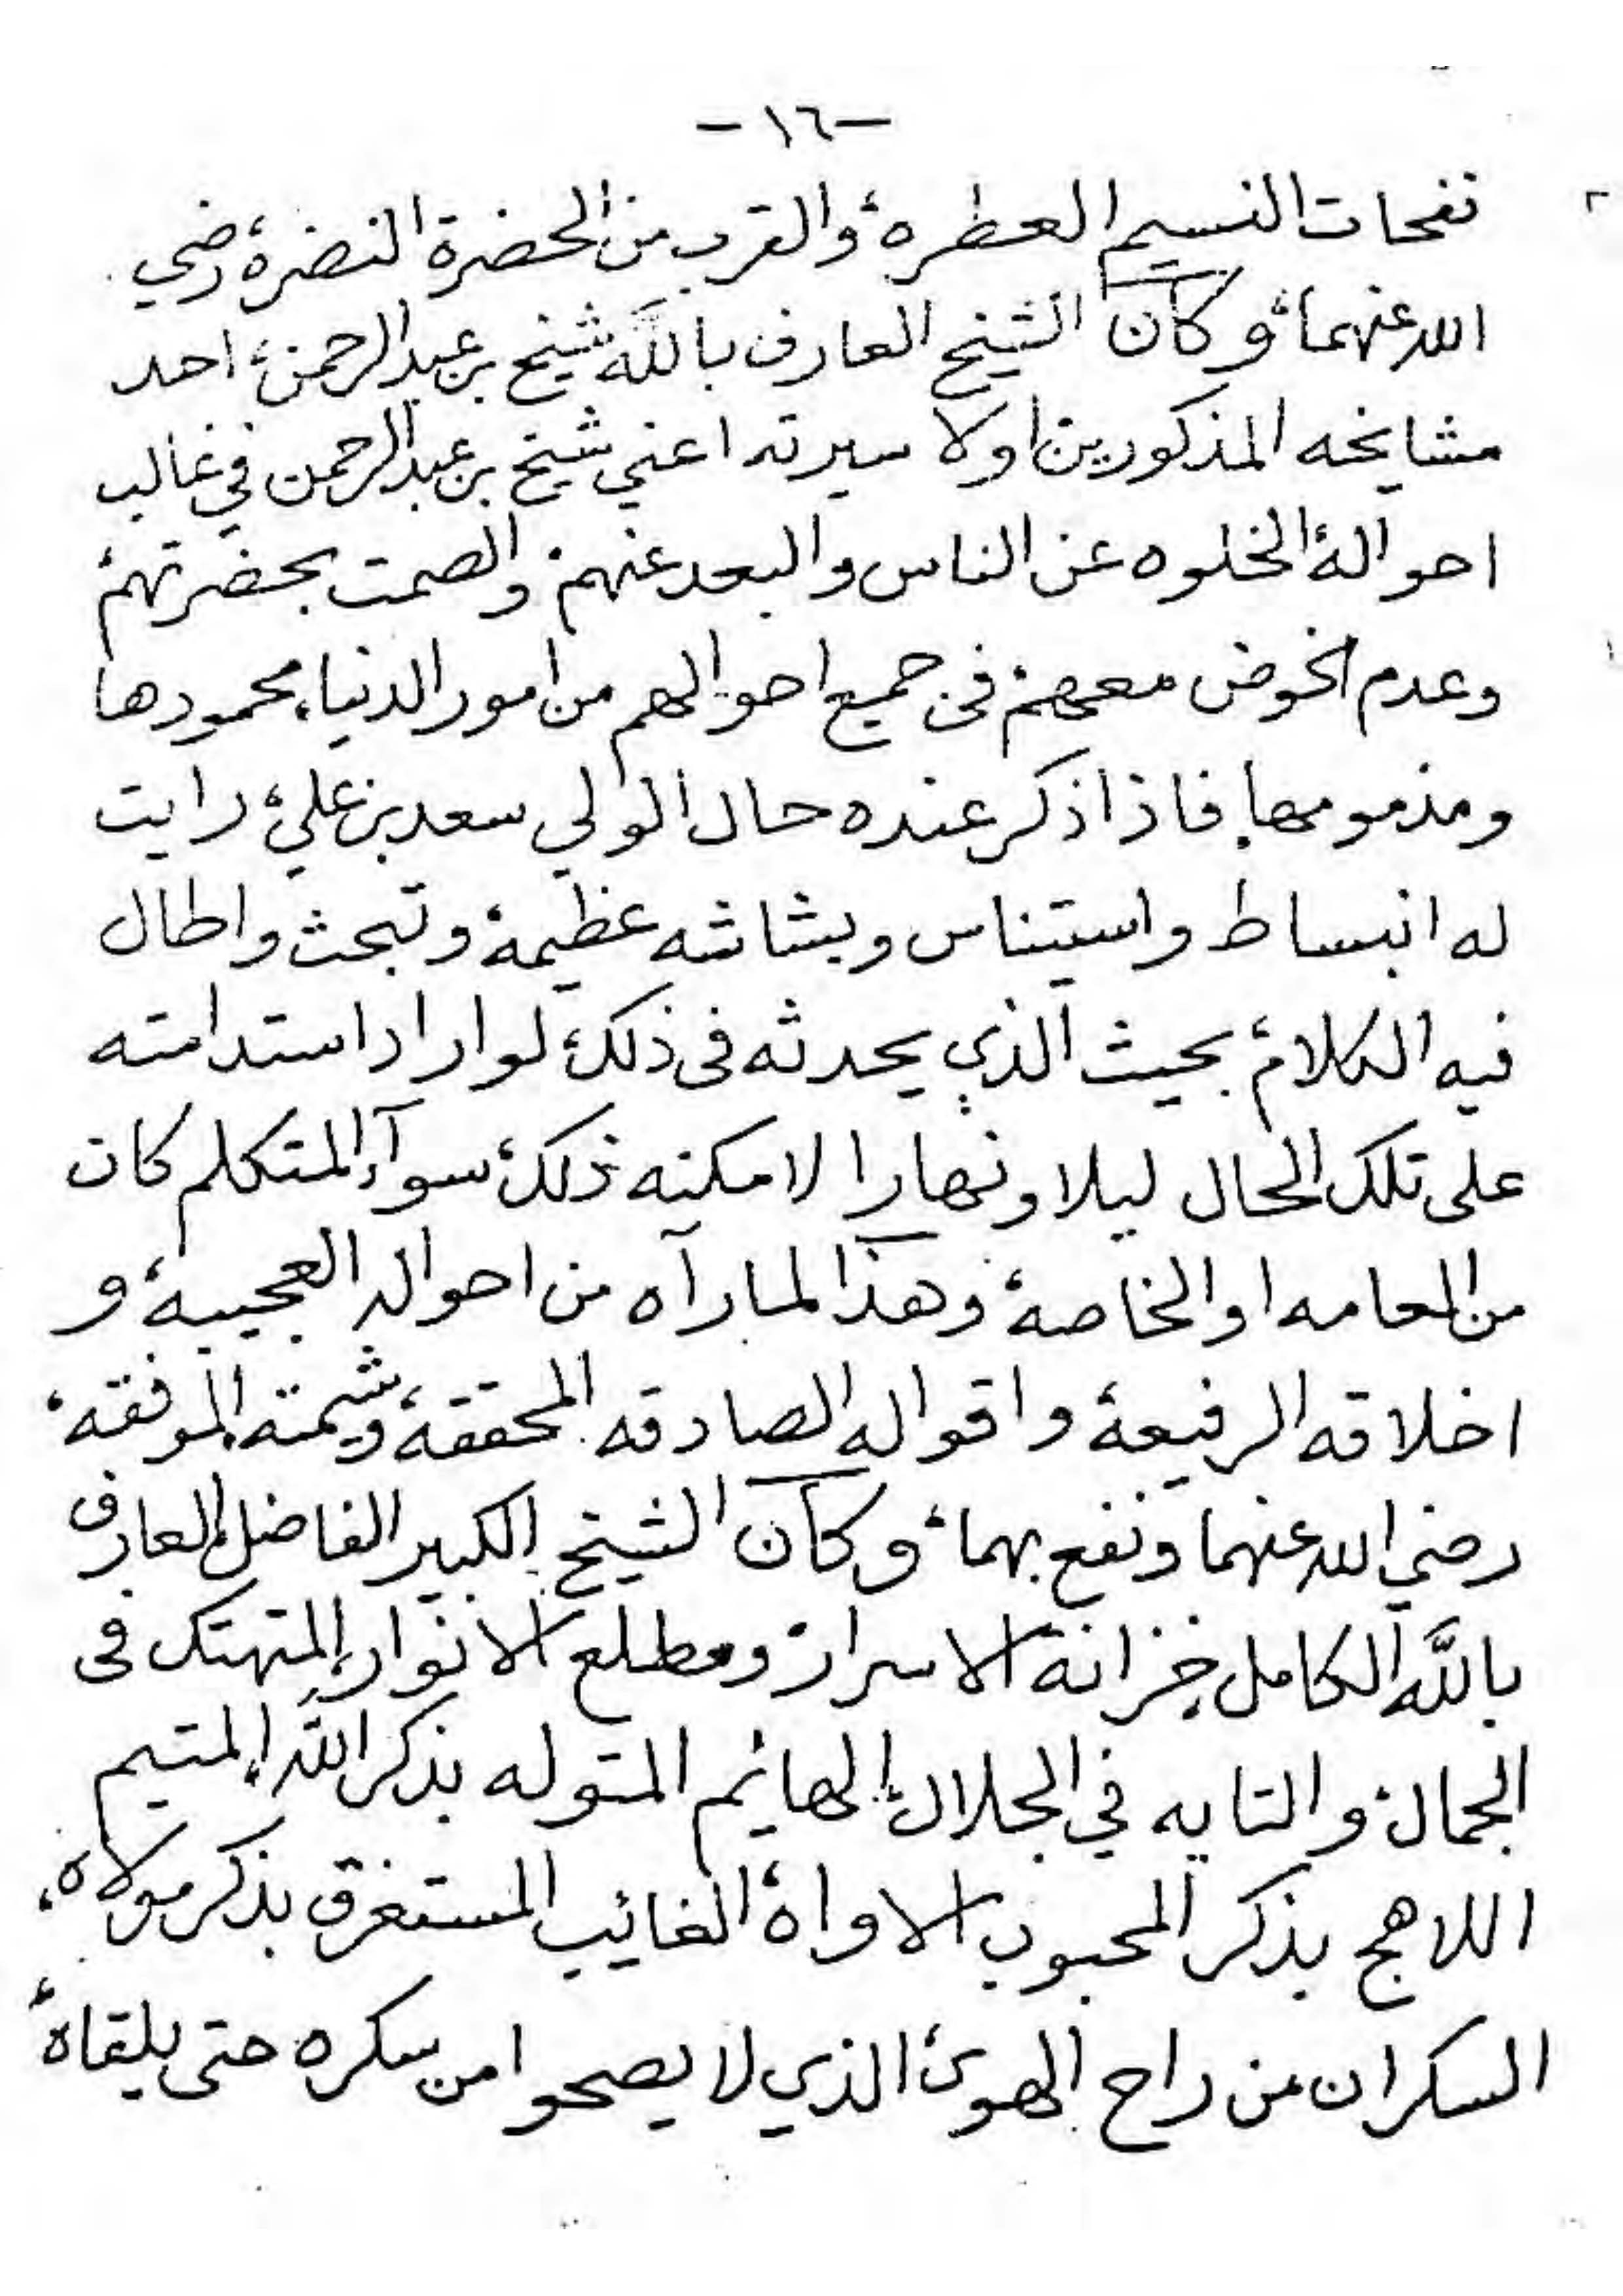 -١٦-
نفحات النسيم العطره، والقرب من الحضرة النضره، رضي
الله عنهما، وكان الشيخ العارف بالله شيخ بن عبد الرحمن، احد
مشايخه المذكورين اولا سيرته اعني شيخ بن عبد الرحمن في غالب
احواله، الخلوه عن الناس والبعد عنهم، والصمت بحضرتهم،
وعدم الخوض معهم، في جميع احوالهم من امور الدنيا، محمودها
ومذمومها، فاذا ذكر عنده حال الولي سعد بن علي، رايت
له انبساط واستيناس وبشاشه عظيمة، وتبحث واطال
فيه الكلام، بحيث الذي يحدثه في ذلك، لو اراد استدامته
على تلك الحال ليلا ونهارا لامكنه ذلك، سوآء المتكلم كان
من العامه او الخاصة، وهذا لما رآه من احواله العجيبة، و
اخلاقه الرفيعة، واقواله الصادقه المحققة، وشيمته الموفقه،
رضي الله عنهما ونفع بهما، وكان الشيخ الكبير الفاضل، العارف
بالله الكامل، خزانة الاسرار، ومطلع الانوار، المتهتك في
الجمال، والتايه في الجلال، الهائم المتوله بذكر الله، المتيم
اللاهج بذكر المحبوب الاواه، الغائب المستغرق بذكر مولاه،
السكران من راح الهوى، الذي لا يصحوا من سكره حتى يلقاه،